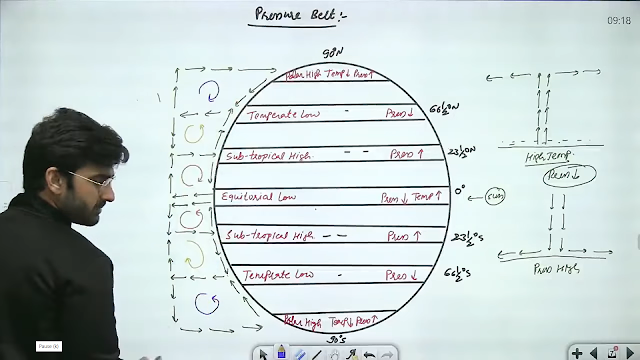 Pressure Belt:-
09:18
90°N
Polar High Temp↓ Pres↑
Temperate Low - Pres↓ 66½°N
Sub-tropical High - - Pres↑ 23½°N
Equitorial Low Pres↓ Temp↑ 0° ← Sun
Sub-tropical High - - Pres↑ 23½°S
Temperate Low - Pres↓ 66½°S
Polar High Temp↓ Pres↑
90°S
High Temp
Pres↓
Pres High